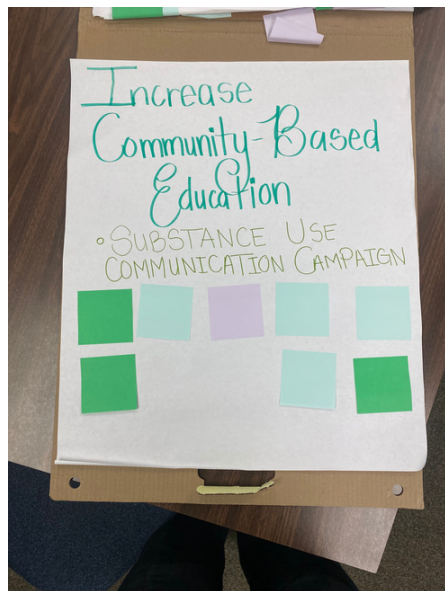 Increase
Community-Based
Education
• SUBSTANCE USE
COMMUNICATION CAMPAIGN